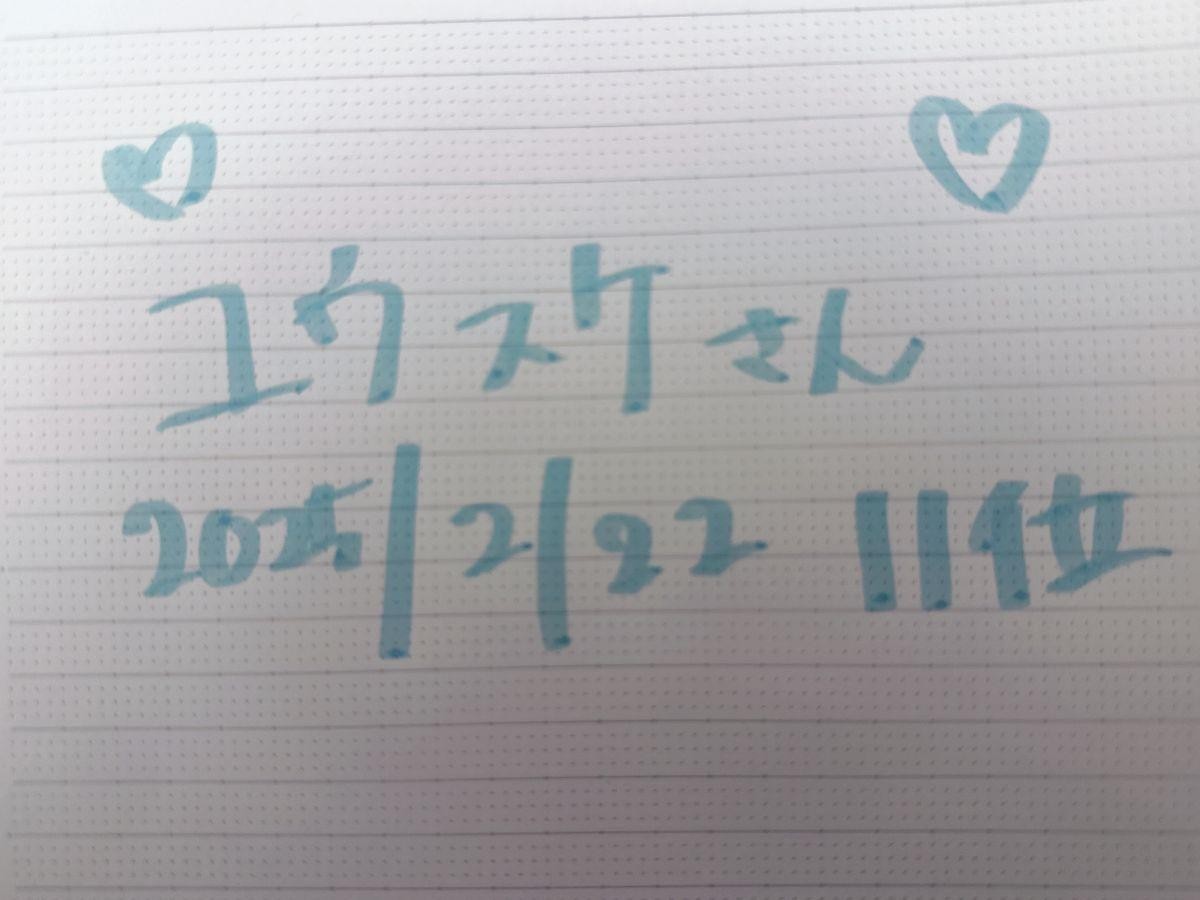 ユウスケさん
2025/2/22 11位